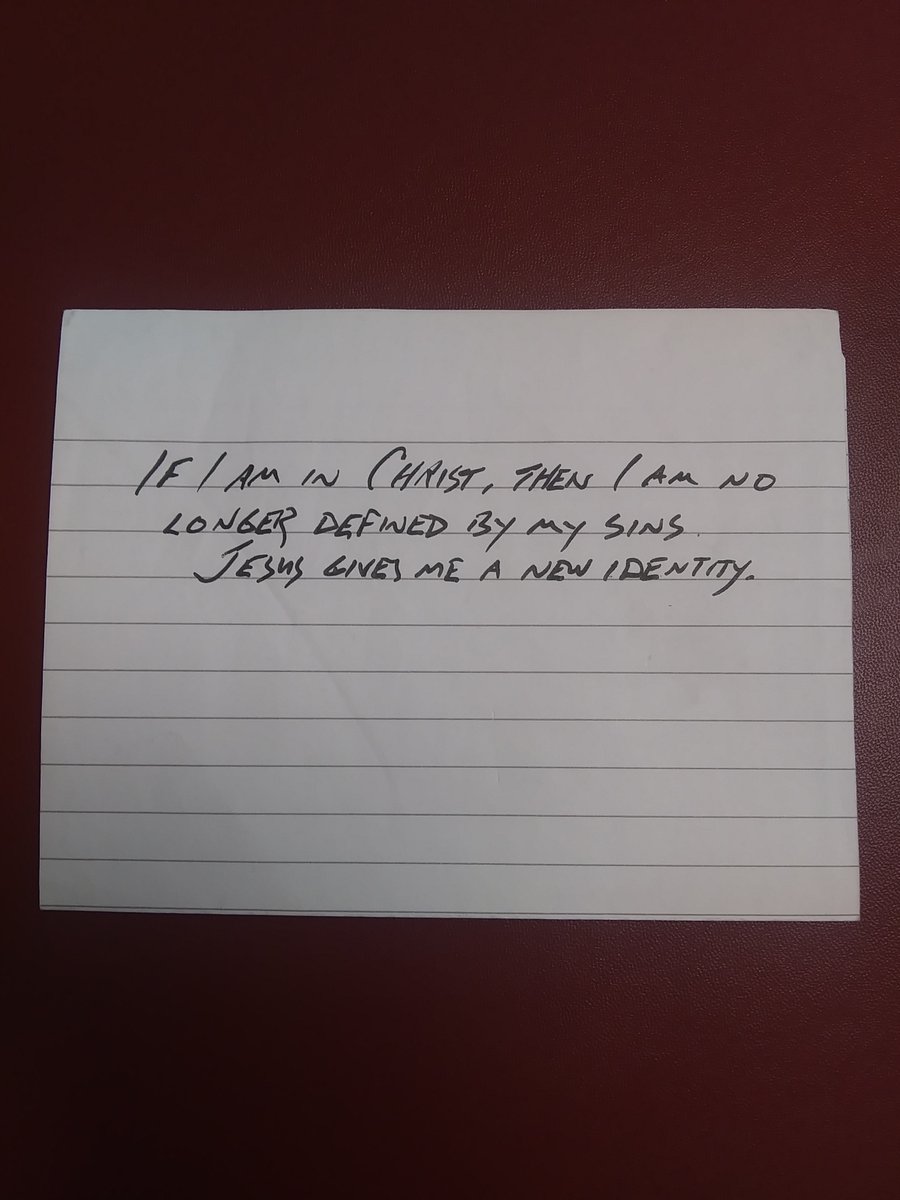 IF I AM IN CHRIST, THEN I AM NO
LONGER DEFINED BY MY SINS.
JESUS GIVES ME A NEW IDENTITY.